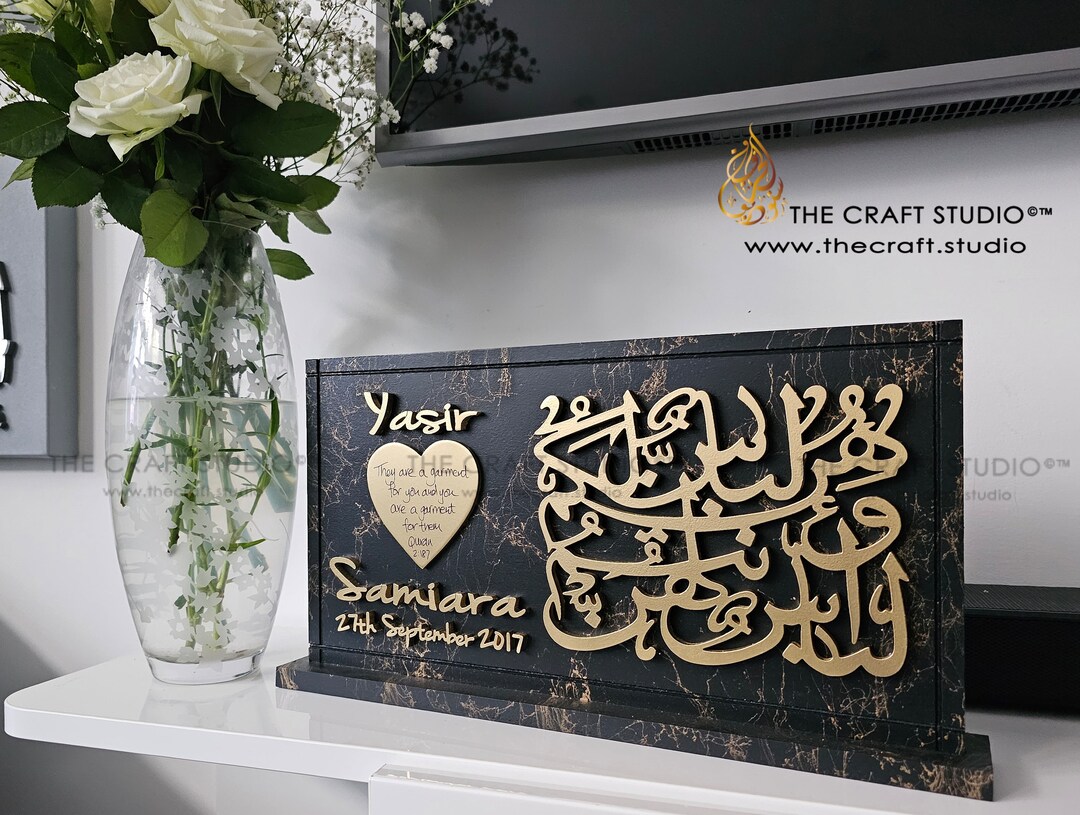 THE CRAFT STUDIO©™
www.thecraft.studio
Yasir
They are a garment
for you and you
are a garment
for them
Quran
2:187
Samiara
27th September 2017
هن لباس لكم
وأنتم
لباس لهن
THE CRAFT STUDIO©™
www.thecraft.studio
THE CRAFT STUDIO
STUDIO©™